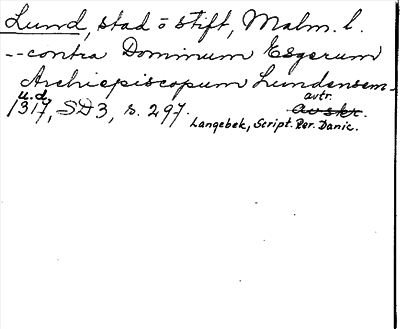 Lund, stad o stift, Malm. l.
-- contra Dominum Esgerum
Archiepiscopum Lundensem -
u.d. avtr.
1317, SD 3, s. 297. av skr.
Langebek, Script. Rer. Danic.